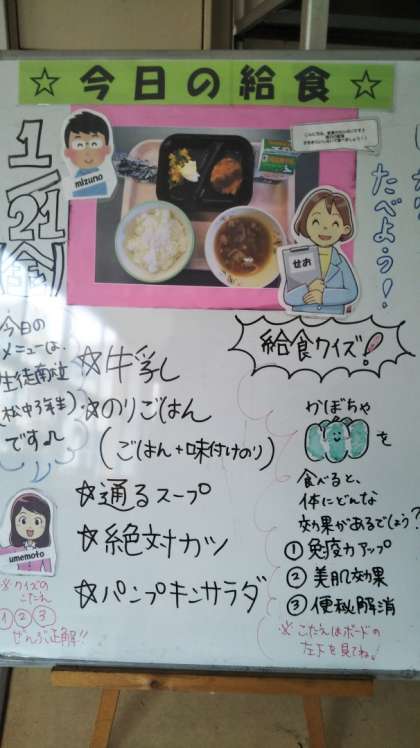 ☆今日の給食☆
1/21(金)
mizuno
せお
たべよう!
今日の
メニューは、
生徒献立
(松中3年生)
です♪
☆牛乳
☆のりごはん
(ごはん+味付けのり)
☆通るスープ
☆絶対カツ
☆パンプキンサラダ
umemoto
※クイズの
こたえ
①②③
ぜんぶ正解!!
給食クイズ!
かぼちゃ
を
食べると、
体にどんな
効果があるでしょう?
①免疫力アップ
②美肌効果
③便秘解消
※こたえはボードの
左下を見てね!